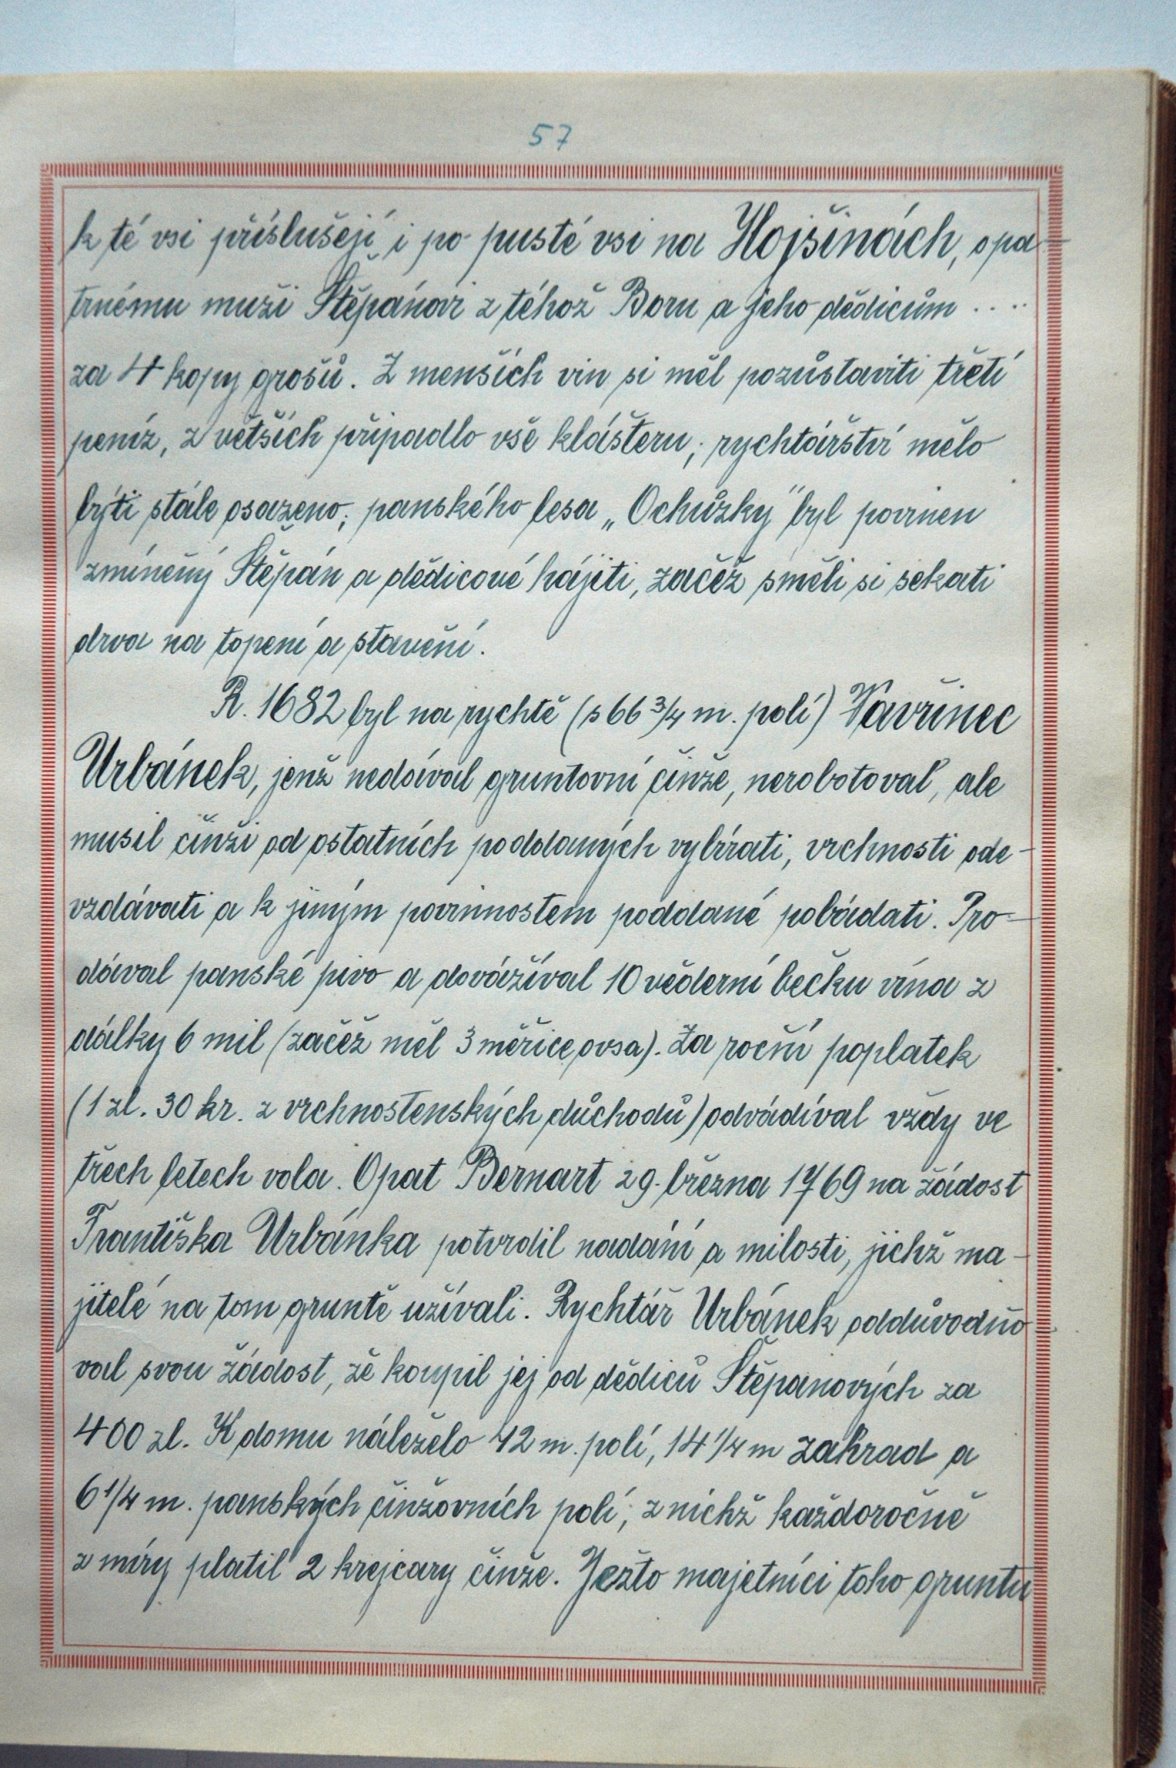 57
k té vsi příslušejí i po pusté vsi na Hojšinách, opa-
trnému muži Štěpánovi z téhož Boru a jeho dědicům . . . .
za 4 kopy grošů. Z menších vin si měl pozůstaviti třetí
peníz, z větších připadlo vše klášteru; rychtářství mělo
býti stále osazeno; panského lesa „Ochůzky" byl povinen
zmíněný Štěpán a dědicové hájiti, začež směli si sekati
drva na topení a stavění.
R. 1682 byl na rychtě (s 66 3/4 m. polí) Vavřinec
Urbánek, jenž nedával gruntovní činže, nerobotoval, ale
musil činži od ostatních poddaných vybírati, vrchnosti ode-
vzdávati a k jiným povinnostem poddané pobádati. Pro-
dával panské pivo a dovážíval 10 věderní bečku vína z
dálky 6 mil (začež měl 3 měřice ovsa). Za roční poplatek
(1 zl. 30 kr. z vrchnostenských důchodů) odvádíval vždy ve
třech letech vola. Opat Bernart 29. března 1769 na žádost
Františka Urbánka potvrdil nadání a milosti, jichž ma-
jitelé na tom gruntě užívali. Rychtář Urbánek odůvodňo-
val svou žádost, že koupil jej od dědiců Štěpánových za
400 zl. K domu náleželo 42 m. polí, 14 1/4 m zahrad a
6 1/4 m. panských činžovních polí, z nichž každoročně
z míry platil 2 krejcary činže. Ježto majetníci toho gruntu